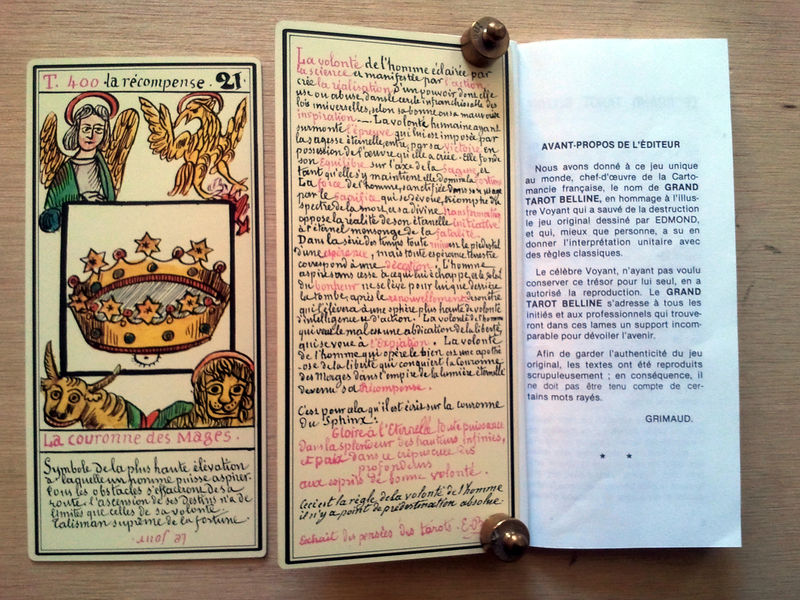 T. 400 la récompense. 21
La couronne des Mages.
Symbole de la plus haute élévation
à laquelle un homme puisse aspirer.
Tous les obstacles s'effacent de sa
route. l'ascension de ses Destins n'a de
limites que celles de sa volonté.
Talisman suprême de la fortune.
le Jour.
La volonté de l'homme éclairée par
la science et manifestée par l'action,
crée la réalisation d'un pouvoir dont elle
use ou abuse, dans le cercle infranchissable des
lois universelles, selon sa bonne ou sa mauvaise
inspiration. La volonté humaine ayant
surmonté l'épreuve qui lui est imposée par
la sagesse éternelle, entre, par sa Victoire en
possession de l'œuvre qu'elle a créé. Elle fonde
son Equilibre sur l'axe de la sagesse, et
tant qu'elle s'y maintient elle domine la fortune
La force de l'homme, sanctifiée dans son usage
par le sacrifice qui se dévoue, triomphe du
spectre de la mort, et sa divine transformation
oppose la réalité de son éternelle initiative
à l'éternel mensonge de la fatalité.
Dans la série des temps toute ruine est le piédestal
d'une espérance, mais toute espérance terrestre
correspond à une déception. L'homme
aspire sans cesse à ce qui lui échappe, et le soleil
du bonheur ne se lève pour lui que derrière
la tombe, après le renouvellement de son être
qui l'élèvera à une sphère plus haute de volonté
intelligence et d'action. La volonté de l'homme
qui veut le mal est une abdication de la liberté,
qui se voue à l'Expiation. La volonté
de l'homme qui opère le bien est une apothé
-ose de la liberté qui conquiert la Couronne
des Mages dans l'empire de la lumière éternelle
devenu sa Récompense.
C'est pour cela qu'il est écrit sur la couronne
du Sphinx:
Gloire à l'Eternelle toute puissance
Dans la splendeur des hauteurs infinies,
et paix dans le crépuscule des
profondeurs
aux esprits de bonne volonté.
Ceci est la règle de la volonté de l'homme
il n'y a point de prédestination absolue
Extrait des pensées des tarots.
AVANT-PROPOS DE L'ÉDITEUR
Nous avons donné à ce jeu unique
au monde, chef-d'œuvre de la Carto-
mancie française, le nom de GRAND
TAROT BELLINE, en hommage à l'illus-
tre Voyant qui a sauvé de la destruction
le jeu original dessiné par EDMOND,
et qui, mieux que personne, a su en
donner l'interprétation unitaire avec
des règles classiques.
Le célèbre Voyant, n'ayant pas voulu
conserver ce trésor pour lui seul, en a
autorisé la reproduction. Le GRAND
TAROT BELLINE s'adresse à tous les
initiés et aux professionnels qui trouve-
ront dans ces lames un support incom-
parable pour dévoiler l'avenir.
Afin de garder l'authenticité du jeu
original, les textes ont été reproduits
scrupuleusement ; en conséquence, il
ne doit pas être tenu compte de cer-
tains mots rayés.
GRIMAUD.
* *